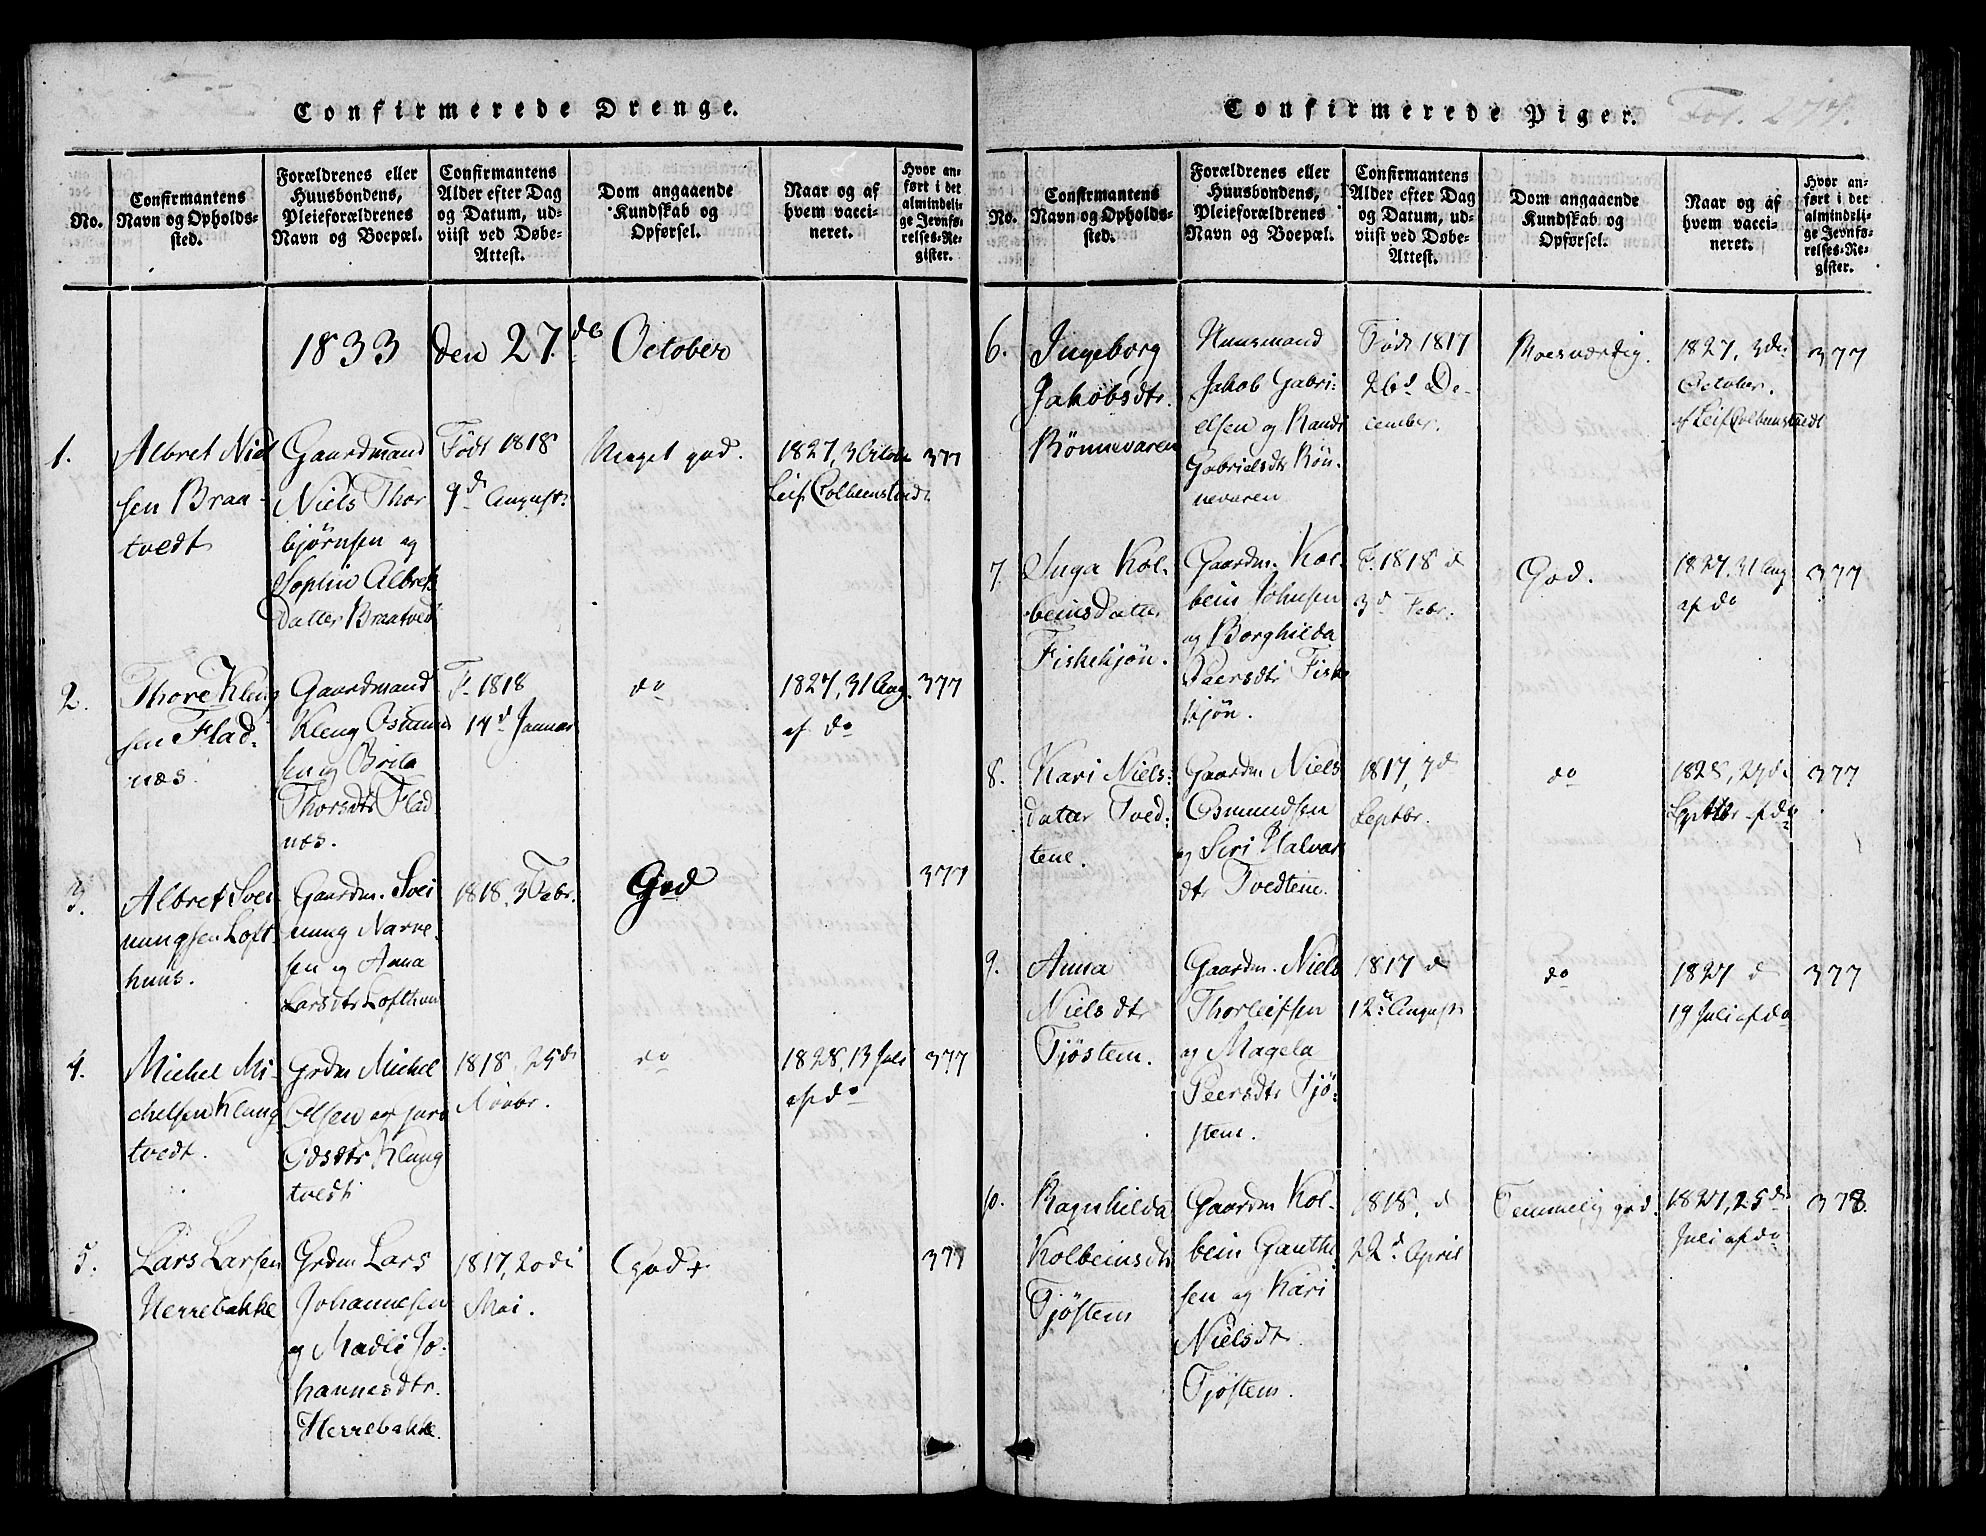 Confirmerede Drenge.
No.
Confirmantens
Navn og Opholds-
sted.
Forældrenes eller
Huusbondens,
Pleieforældrenes
Navn og Boepæl.
Confirmantens
Alder efter Dag
og Datum, ud-
viist ved Døbe-
Attest.
Dom angaaende
Kundskab og
Opførsel.
Naar og af
hvem vacci-
neret.
Hvor an-
ført i det
almindeli-
ge Jevnfø-
relses-Re-
gister.
1833 den 27. de October
1.
Albret Niel
sen Braa-
tvedt
Gaardmand
Niels Thor
bjørnsen og
Sophie Albrets
Datter Braatved
Født 1818
9 d August
Meget god.
1827, 3 Octobr
Leif Colbeinstvedt
377
2.
Thore Kleng
sen Flad-
næs.
Gaardmand
Kleng Osmund
sen og Brita
Thorsdtr Flad
næs.
F. 1818
14 d Januar
do
1827, 31 Aug.
af do
377
3.
Albret Svei
nungsen Loft-
huus.
Gaardm. Svei
nung Narve-
sen og Anna
Larsdtr Lofthuus
1818, 3 Febr.
God
377
4.
Michel Mi-
chelsen Klung
tvedt.
Grdm Michel
Olsen og
Klung
tvedt
1818, 25 de
Novbr.
do
1828, 13 Juli
af do
377
5.
Lars Larsen
Herrebakke
Grdm Lars
Johannesen
og Madli Jo-
hannesdtr.
Herrebakke.
1817, 20 di
Mai.
God
377
Confirmerede Piger.
Fol. 274.
No.
Confirmantens
Navn og Opholds-
sted.
Forældrenes eller
Huusbondens,
Pleieforældrenes
Navn og Boepæl.
Confirmantens
Alder efter Dag
og Datum, ud-
viist ved Døbe-
Attest.
Dom angaaende
Kundskab og
Opførsel.
Naar og af
hvem vacci-
neret.
Hvor an-
ført i det
almindeli-
ge Jevnfø-
relses-Re-
gister.
6.
Ingeborg
Jakobsdtr.
Rönnevaren
Huusmand
Jakob Gabri-
elsen og Randi
Gabrielsdtr Rön-
nevaren
Født 1817
26 d De-
cember.
Roesværdig.
1827, 3 die
October.
af Leif Colbeinstvedt
377
7.
Inga Kol-
beinsdatter
Fiskekjön.
Gaardm. Kol-
bein Johnsen
og Borghilda
Paersdtr Fiske
kjön.
F. 1818 d
3 d Febr.
God.
1827, 31 Aug
af do
377
8.
Kari Niels-
datter Tved-
tene.
Gaardm Niels
Osmundsen
og Siri Halvar
dtr Tvedtene.
1817, 7 d
Septbr.
do
1828, 27 de
Septbr af do
377
9.
Anna
Nielsdtr
Tjöstem.
Gaardm. Niels
Thorleifsen
og Magela
Peersdtr Tjö-
stem.
1817 d
12 d August
do
1827 d
19 Juli af do
377
10.
Ragnhilda
Kolbeinsdtr
Tjöstem
Gaardm Kol-
bein Gauthe
sen og Kari
Nielsdtr
Tjöstem.
1818, d
22 d April
Temmelig god.
1827, 25 de
Juli af do
378.